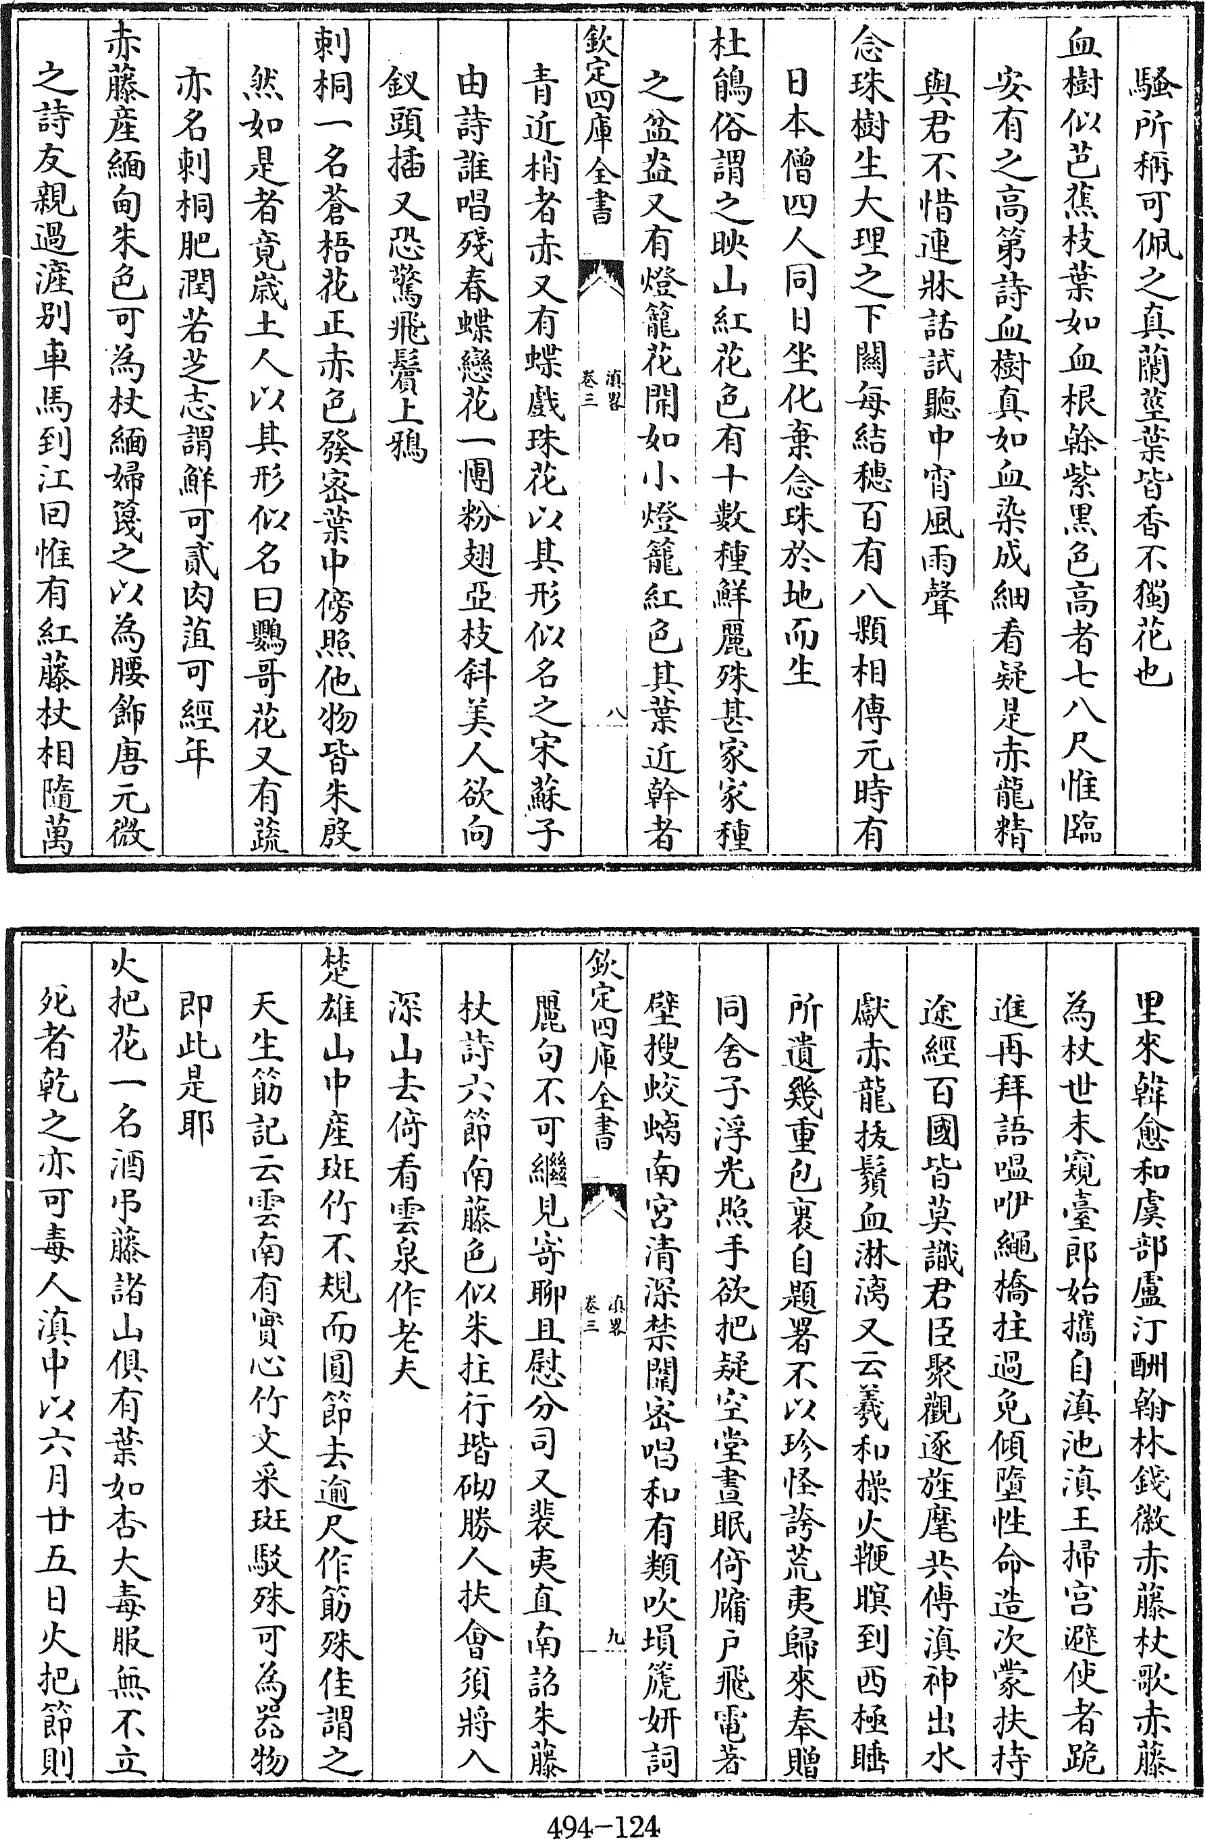 騷所稱可佩之真蘭莖葉皆香不獨花也
血樹似芭蕉枝葉如血根幹紫黑色高者七八尺惟臨
安有之高第詩血樹真如血染成細看疑是赤龍精
與君不惜連牀話試聽中宵風雨聲
念珠樹生大理之下關每結穗百有八顆相傳元時有
日本僧四人同日坐化棄念珠於地而生
杜鵑俗謂之映山紅花色有十數種鮮麗殊甚家家種
之盆盎又有燈籠花開如小燈籠紅色其葉近幹者
欽定四庫全書
滇畧
卷三
八
青近梢者赤又有蝶戲珠花以其形似名之宋蘇子
由詩誰唱殘春蝶戀花一團粉翅亞枝斜美人欲向
釵頭插又恐驚飛鬢上鴉
刺桐一名蒼梧花正赤色發宻葉中傍照他物皆朱殷
然如是者竟歳土人以其形似名曰鸚哥花又有蔬
亦名刺桐肥潤若芝志謂鮮可貳肉菹可經年
赤藤産緬甸朱色可為杖緬婦篾之以為腰飾唐元微
之詩友親過滻別車馬到江回惟有紅藤杖相隨萬
里來韓愈和虞部盧汀酬翰林錢徽赤藤杖歌赤藤
為杖世未窺臺郎始攜自滇池滇王掃宫避使者跪
進再拜語嗢咿繩橋拄過免傾墮性命造次蒙扶持
途經百國皆莫識君臣聚觀逐旌麾共傳滇神出水
獻赤龍拔鬚血淋漓又云羲和操火鞭暝到西極睡
所遺幾重包裹自題署不以珍怪誇荒夷歸來奉贈
同舍子浮光照手欲把疑空堂晝眠倚牖户飛電著
壁搜蛟螭南宫清深禁闈宻唱和有類吹塤篪妍詞
欽定四庫全書
滇畧
卷三
九
麗句不可繼見寄聊且慰分司又裴夷直南詔朱藤
杖詩六節南藤色似朱拄行堦砌勝人扶會須將入
深山去倚看雲泉作老夫
楚雄山中産斑竹不規而圓節去逾尺作筯殊佳謂之
天生筯記云雲南有實心竹文采斑駁殊可為器物
即此是耶
火把花一名酒弔藤諸山俱有葉如杏大毒服無不立
死者乾之亦可毒人滇中以六月廿五日火把節則
494-124